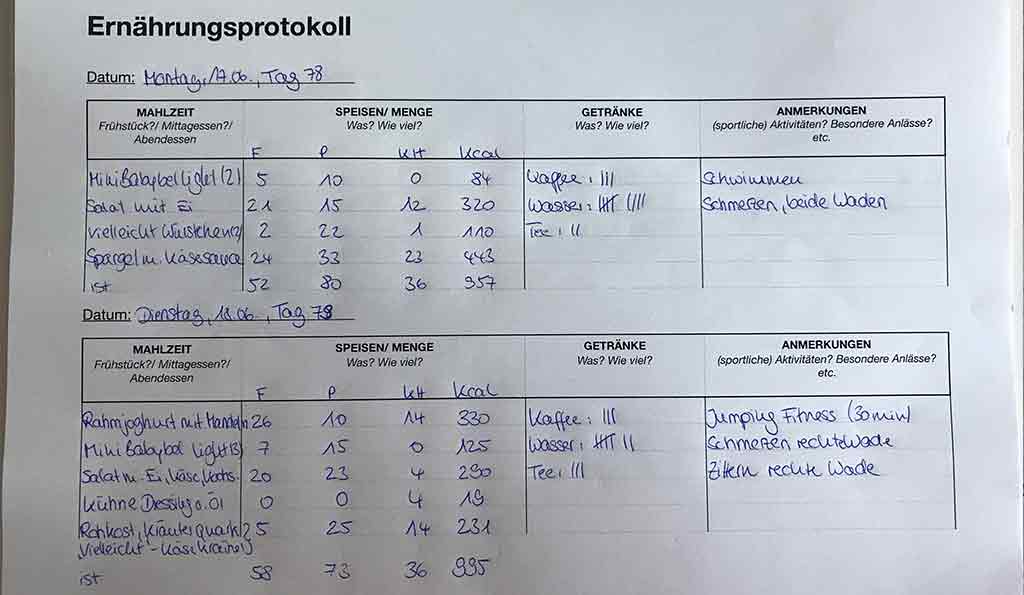 Ernährungsprotokoll
Datum: Montag, 17.06., Tag 78
MAHLZEIT SPEISEN/ MENGE GETRÄNKE ANMERKUNGEN
Frühstück?/ Mittagessen?/ Was? Wie viel? Was? Wie viel? (sportliche) Aktivitäten? Besondere Anlässe?
Abendessen etc.
F P KH Kcal
Mini Babybel Light (2) 5 10 0 84 Kaffee: III Schwimmen
Salat mit Ei 21 15 12 320 Wasser: IIII IIII Schmerzen, beide Waden
vielleicht Würstchen (2) 2 22 1 110 Tee: II
Spargel m. Käsesauce 24 33 23 443
ist 52 80 36 957
Datum: Dienstag, 18.06., Tag 79
MAHLZEIT SPEISEN/ MENGE GETRÄNKE ANMERKUNGEN
Frühstück?/ Mittagessen?/ Was? Wie viel? Was? Wie viel? (sportliche) Aktivitäten? Besondere Anlässe?
Abendessen etc.
F P KH Kcal
Rahmjoghurt mit Mandeln 26 10 14 330 Kaffee: III Jumping Fitness (30min)
Mini Babybel Light (3) 7 15 0 125 Wasser: IIII II Schmerzen rechte Wade
Salat m. Ei, Käse, 20 23 4 290 Tee: III Zittern rechte Wade
Kühne Dressing o. Öl 0 0 4 19
Rohkost, Kräuterquark 5 25 14 231
"Vielleicht"-Käsekrainer
ist 58 73 36 995